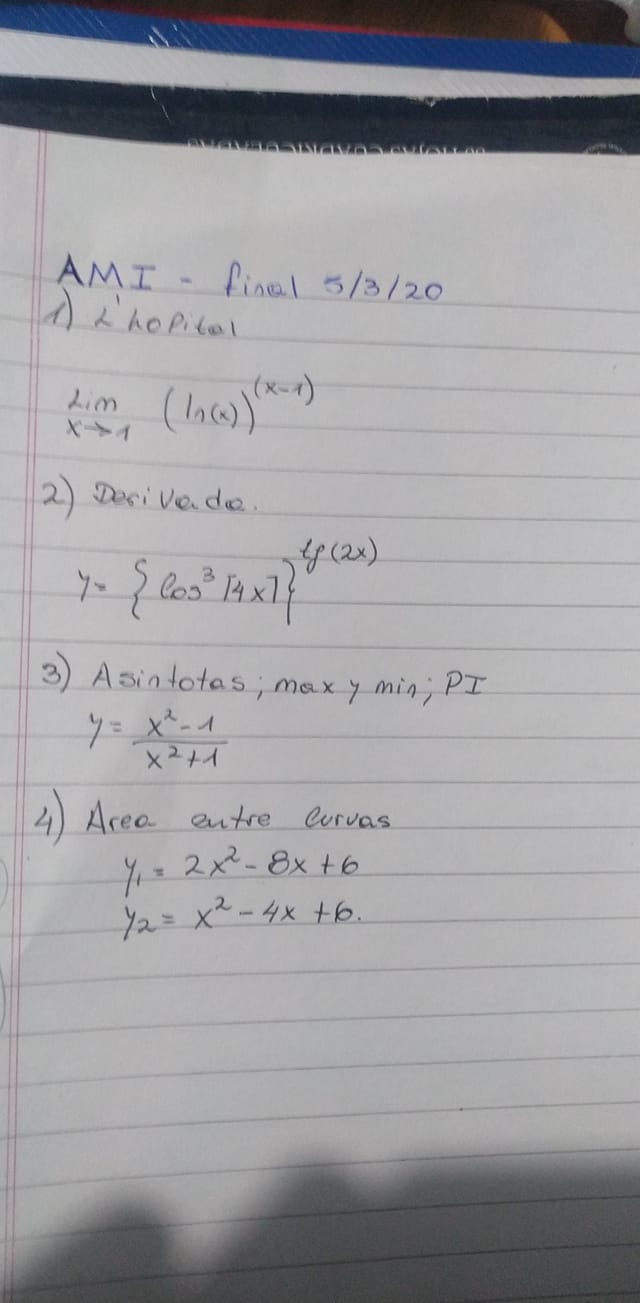 AMI - final 5/3/20
1) L'hopital
Lim (ln(x))^(x-1)
x→1
2) Derivada.
y= {Cos³ [4x]}^tg(2x)
3) Asintotas; max y min; PI
y= x²-1
x²+1
4) Area entre Curvas
y₁ = 2x² - 8x +6
y₂ = x² - 4x +6.